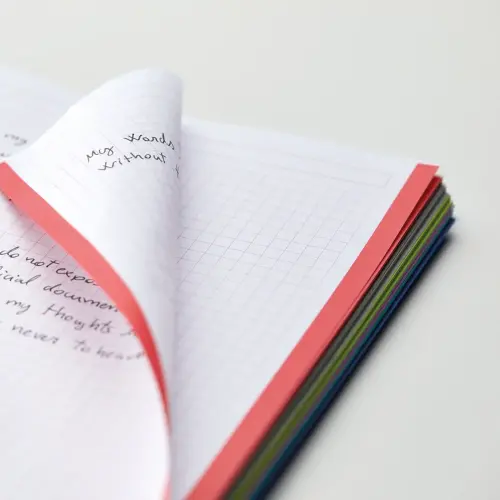 my words
without
do not expo
icial documen
my thoughts
never to hea